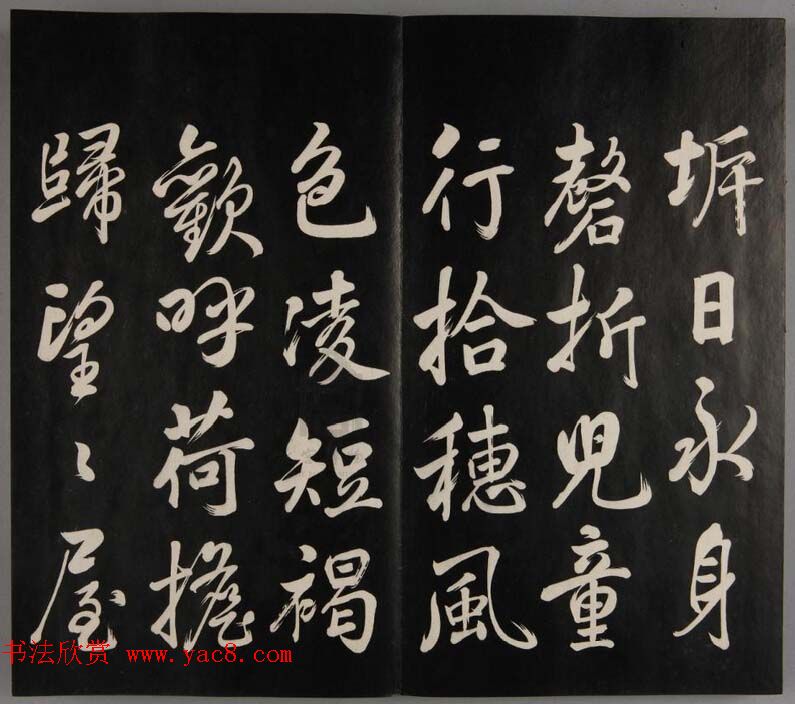 坼日永身
磬折兒童
行拾穗風
色凌短褐
歡呼荷擔
歸望〻屋
书法欣赏 www.yac8.com